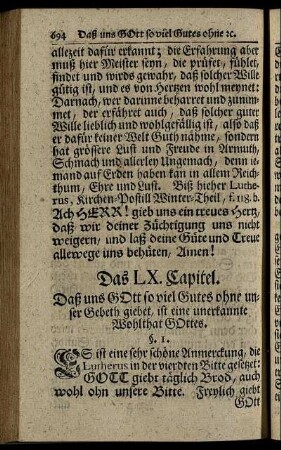 694 Daß uns GOtt so viel Gutes ohne ꝛc.
allezeit dafür erkannt; die Erfahrung aber
muß hier Meister seyn, die prüfet, fühlet,
findet und wirds gewahr, daß solcher Wille
gütig ist, und es von Hertzen wohl meynet:
Darnach, wer darume beharret und zunim-
met, der erfähret auch, daß solcher guter
Wille lieblich und wohlgefällig ist, also daß
er dafür keiner Welt Guth nähme, sondern
hat grössere Lust und Freude in Armuth,
Schmach und allerley Ungemach, denn je-
mand auf Erden haben kan in allem Reich-
thum, Ehre und Lust. Biß hieher Luthe-
rus, Kirchen-Postill Winter-Theil, f. 118. b.
Ach HERR! gieb uns ein treues Hertz,
daß wir deiner Züchtigung uns nicht
weigern, und laß deine Güte und Treue
allewege uns behüten, Amen!
Das LX. Capitel.
Daß uns GOtt so viel Gutes ohne un-
ser Gebeth giebet, ist eine unerkannte
Wohlthat GOttes.
§. 1.
ES ist eine sehr schöne Anmerckung, die
Lutherus in der vierdten Bitte gesetzt:
GOTT giebt täglich Brod, auch
wohl ohn unsere Bitte. Freylich giebt
GOtt